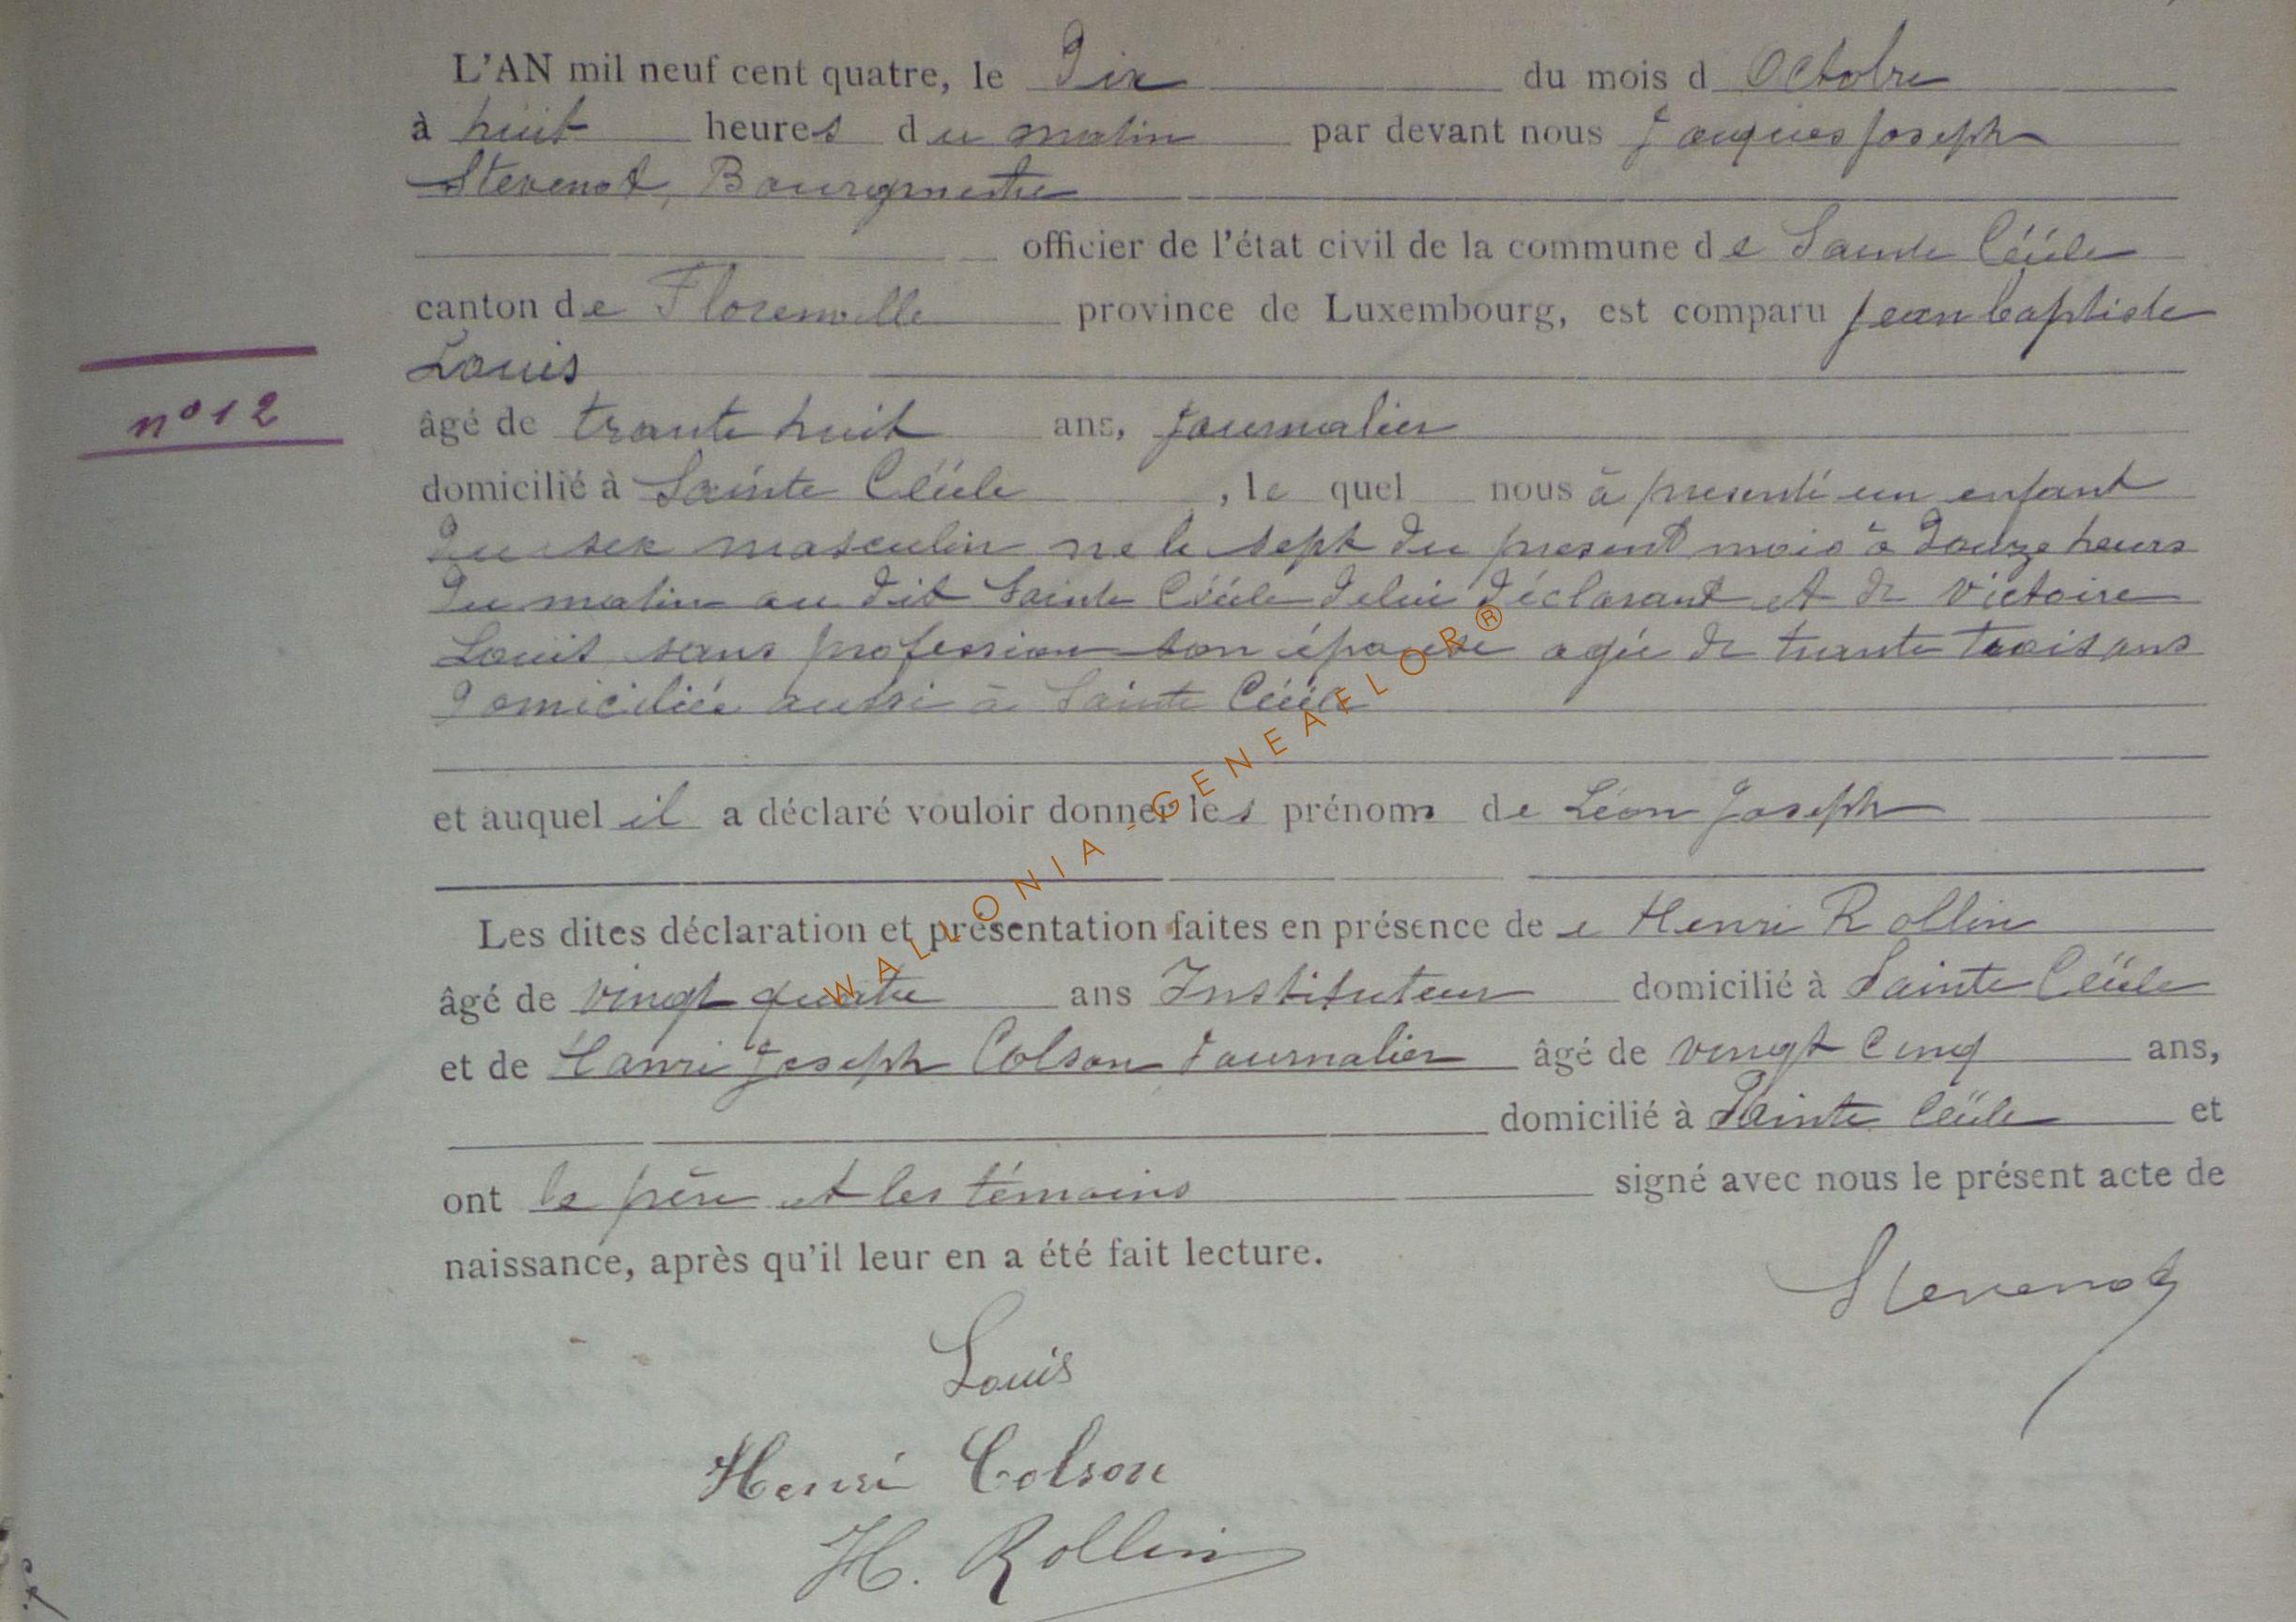 L'AN mil neuf cent quatre, le Dix du mois d Octobre
à huit heures du matin par devant nous Jacques Joseph
Stevenot, Bourgmestre
officier de l'état civil de la commune de Sainte Cécile
canton de Florenville province de Luxembourg, est comparu Jean baptiste
Louis
n° 12
âgé de trante huit ans, Journalier
domicilié à Sainte Cécile, le quel nous à presenté un enfant
Du sex masculin ne le sept du present mois à Douze heurs
Du matin au dit Sainte Cécile de lui Déclarant et de Victoire
Louis sans profession son épouse agée de trante trois ans
Domiciliée aussi à Sainte Cécile
et auquel il a déclaré vouloir donner les prénoms de Léon Joseph
Les dites déclaration et présentation faites en présence de e Henri Rollin
âgé de vingt quatre ans Instituteur domicilié à Sainte Cécile
et de Hanri Joseph Colson Journalier âgé de vingt cinq ans,
domicilié à Sainte Cécile et
ont le père et les témoins signé avec nous le présent acte de
naissance, après qu'il leur en a été fait lecture.
Stevenot
Louis
Henri Colson
H. Rollin
WALLONIA-GENEAFLOR®